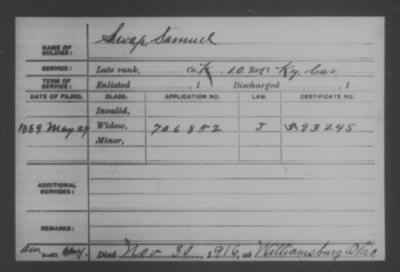 NAME OF SOLDIER: Swap, Samuel
SERVICE: Late rank, Co. K, 10 Reg't Ky. Cav.
TERM OF SERVICE: Enlisted , 1 Discharged , 1
DATE OF FILING. CLASS. APPLICATION NO. LAW. CERTIFICATE NO.
Invalid,
1889 May 27 Widow, 706852 J 593245
Minor,
ADDITIONAL SERVICES:
REMARKS:
Died Nov 30, 1916, at Williamsburg Ohio